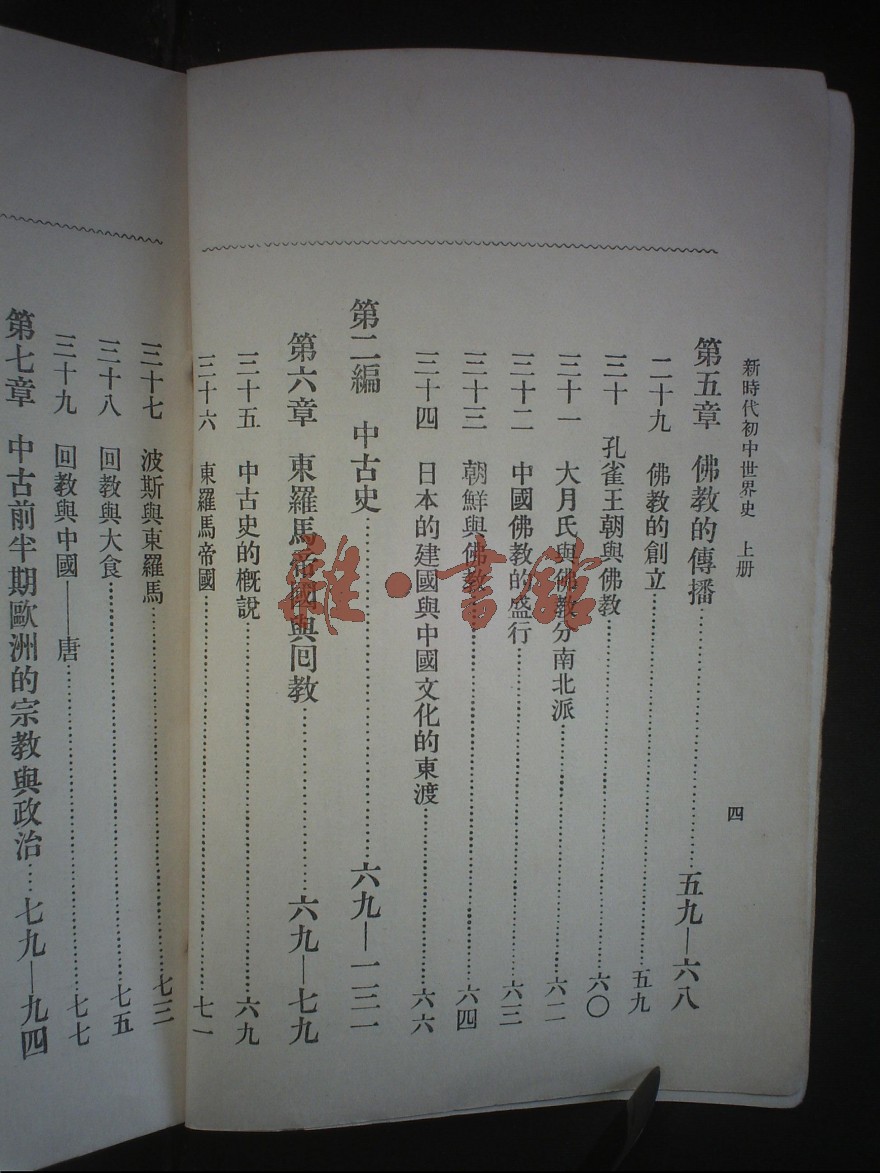 新時代初中世界史 上册
四
第五章 佛教的傳播……五九—六八
二十九 佛教的創立……五九
三十 孔雀王朝與佛教……六〇
三十一 大月氏與佛教分南北派……六二
三十二 中國佛教的盛行……六三
三十三 朝鮮與佛教……六四
三十四 日本的建國與中國文化的東渡……六六
第二編 中古史……六九—一三一
第六章 東羅馬帝國與回教……六九—七九
三十五 中古史的槪說……六九
三十六 東羅馬帝國……七一
三十七 波斯與東羅馬……七三
三十八 回教與大食……七五
三十九 回教與中國——唐……七七
第七章 中古前半期歐洲的宗教與政治……七九—九四
雜·書館